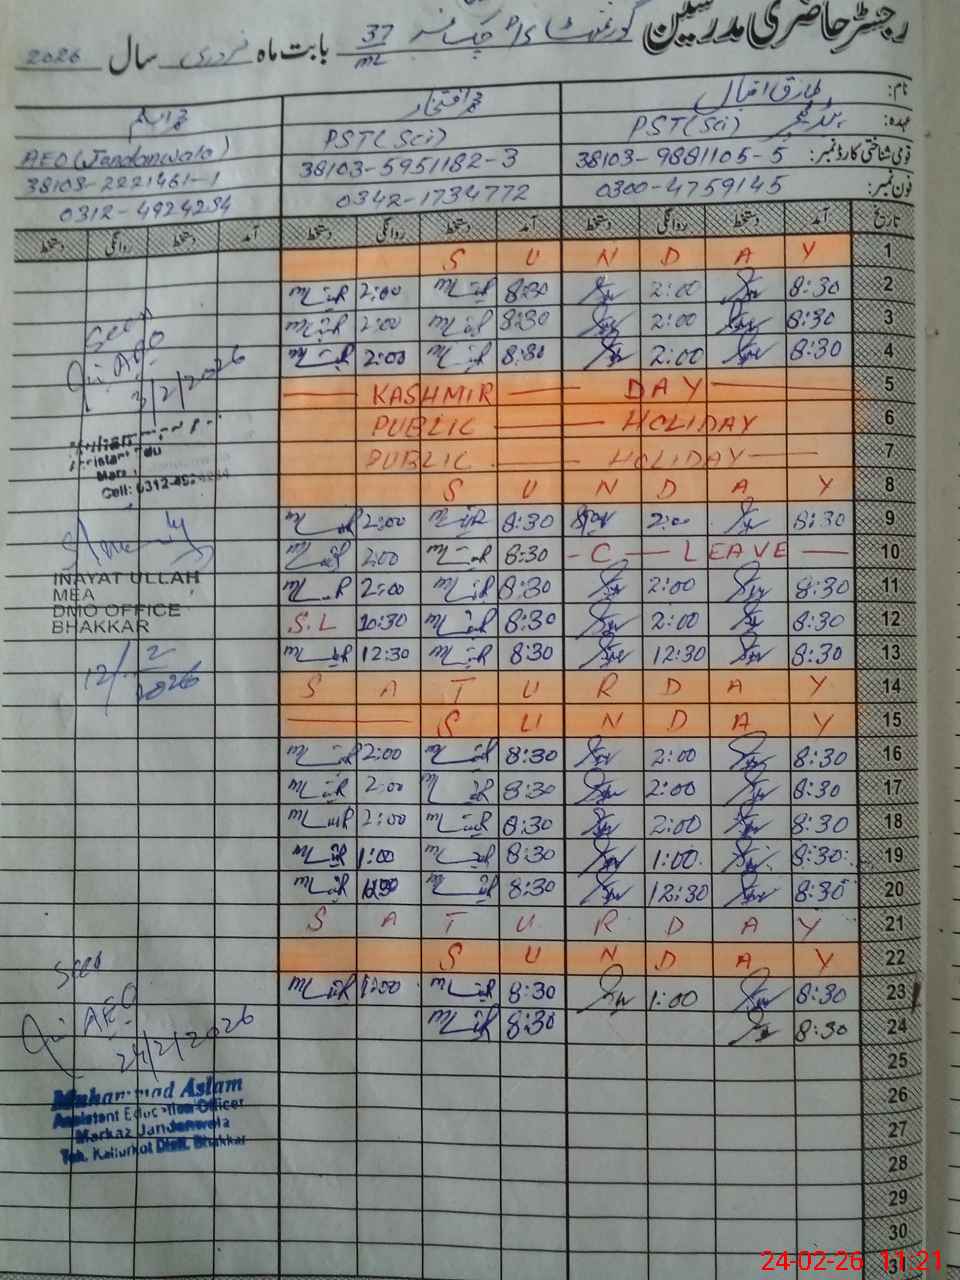 رجسٹر حاضری مدرسین گورنمنٹ چک نمبر 37/ML بابت ماہ فروری سال 2026
نام: طارق اقبال
عہدہ: PST(Sci) PST(Sci) AEO (Jandanwala)
قومی شناختی کارڈ نمبر: 38103-9881105-5 38103-5951182-3 38103-2221461-1
فون نمبر: 0300-4759145 0342-1734772 0312-4924234
تاریخ آمد دستخط روانگی دستخط آمد دستخط روانگی دستخط آمد دستخط روانگی دستخط
1 S U N D A Y
2 8:30 2:00 8:30 2:00
3 8:30 2:00 8:30 2:00
4 8:30 2:00 8:30 2:00
5 KASHMIR DAY
6 PUBLIC HOLIDAY
7 PUBLIC HOLIDAY
8 S U N D A Y
9 8:30 2:00 8:30 2:00
10 C LEAVE 8:30 2:00
11 8:30 2:00 8:30 2:00
12 8:30 2:00 8:30 10:30 S.L
13 8:30 12:30 8:30 12:30
14 S A T U R D A Y
15 S U N D A Y
16 8:30 2:00 8:30 2:00
17 8:30 2:00 8:30 2:00
18 8:30 2:00 8:30 2:00
19 8:30 1:00 8:30 1:00
20 8:30 12:30 8:30
21 S A T U R D A Y
22 S U N D A Y
23 8:30 1:00 8:30 1:00
24 8:30 8:30
25
26
27
28
29
30
Seen
AEO
/2/2026
Cell: 0312-492
INAYAT ULLAH
MEA
DMO OFFICE
BHAKKAR
12/2
2026
Seen
AEO
24/2/2026
Muhammad Aslam
Assistant Education Officer
Markaz Jandanwala
Teh. Kallurkot Distt. Bhakkar
24-02-26 11:21